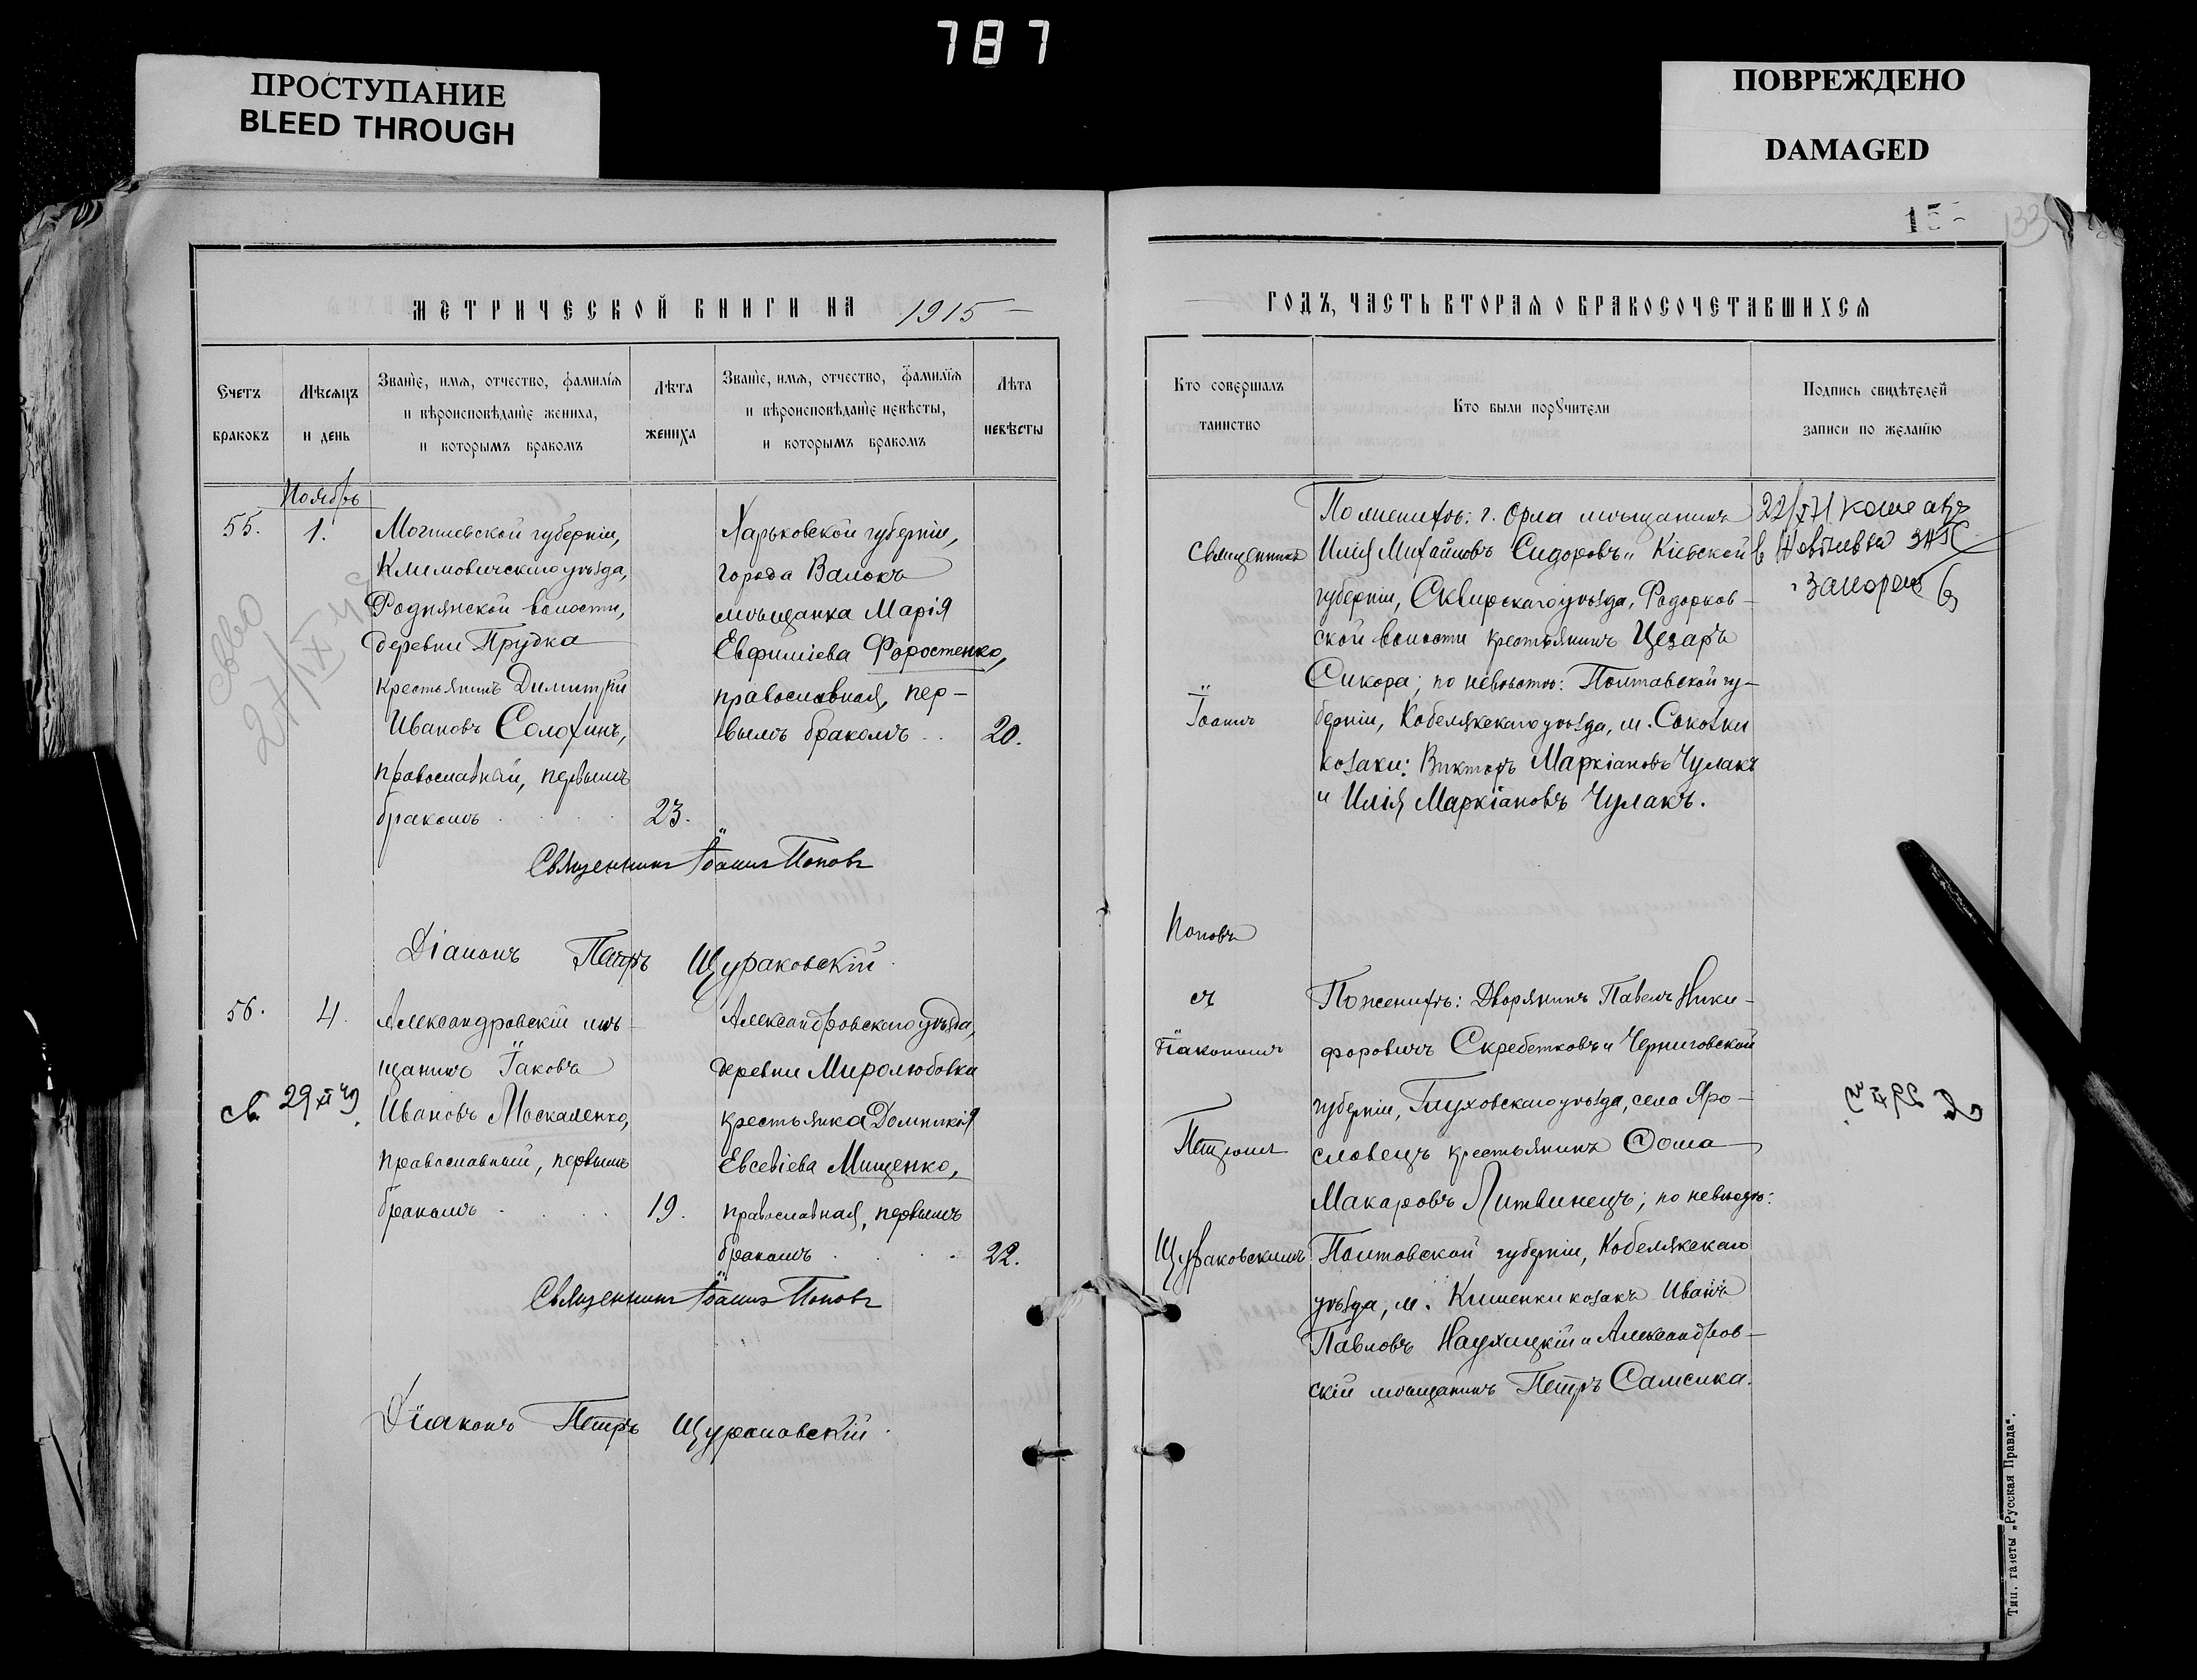 787
ПРОСТУПАНИЕ
BLEED THROUGH
ПОВРЕЖДЕНО
DAMAGED
МЕТРИЧЕСКОЙ КНИГИ НА 1915
Счетъ
браковъ
Мѣсяцъ
и день
Званіе, имя, отчество, фамилія
и вѣроисповѣданіе жениха,
и которымъ бракомъ
Лѣта
жениха
Званіе, имя, отчество, фамилія
и вѣроисповѣданіе невѣсты,
и которымъ бракомъ
Лѣта
невѣсты
Ноябрь
55.
1.
Могилевской губерніи,
Климовичскаго уѣзда,
Роднянской волости,
деревни Прудка
крестьянинъ Димитрій
Ивановъ Солохинъ,
православный, первымъ
бракомъ
23.
Харьковской губерніи,
города Валокъ
мѣщанка Марія
Евфиміева Форостенко,
православная, пер-
вымъ бракомъ
20.
Священникъ Іоаннъ Поповъ
Діаконъ Петръ Щураковскій.
56.
4.
св 29 XI 49
Александровскій мѣ-
щанинъ Іаковъ
Ивановъ Москаленко,
православный, первымъ
бракомъ
19.
Александровскаго уѣзда,
деревни Миролюбовки
крестьянка Домникія
Евсевіева Мищенко,
православная, первымъ
бракомъ
22.
Священникъ Іоаннъ Поповъ
Діаконъ Петръ Щураковскій.
133
ГОДЪ, ЧАСТЬ ВТОРАЯ О БРАКОСОЧЕТАВШИХСЯ
Кто совершалъ
таинство
Кто были поручители
Подпись свидѣтелей
записи по желанію
Священникъ
Іоаннъ
Поповъ
съ
діакономъ
Петромъ
Щураковскимъ
По женихѣ: г. Орла мѣщанинъ
Илія Михайловъ Сидоровъ и Кіевской
губерніи, Сквирскаго уѣзда, Ходорков-
ской волости крестьянинъ Цезарь
Сикора; по невѣстѣ: Полтавской гу-
берніи, Кобелякскаго уѣзда, м. Соколки
козаки: Викторъ Маркіановъ Чулакъ
и Илія Маркіановъ Чулакъ.
По женихѣ: Дворянинъ Павелъ Ники-
форовичъ Скребетковъ и Черниговской
губерніи, Глуховскаго уѣзда, села Яро-
славецъ крестьянинъ Ѳома
Макаровъ Литвинецъ; по невѣстѣ:
Полтавской губерніи, Кобелякскаго
уѣзда, м. Кишенки козакъ Иванъ
Павловъ Наухицкій и Александров-
скій мѣщанинъ Петръ Самсика.
Тип. газеты „Русская Правда“.